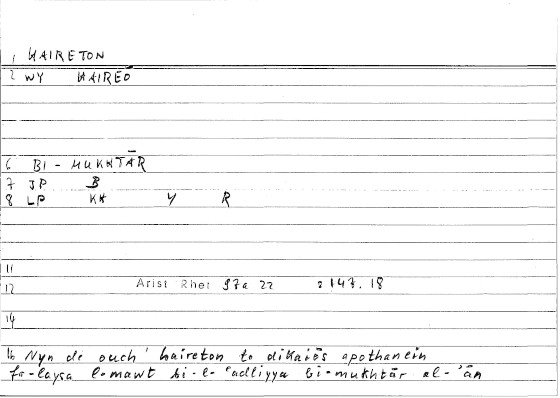 1 HAIRETON
2 WY HAIREŌ
6 BI - MUKHTĀR
7 JP B
8 LP KH Y R
11
12 Arist Rhet 97a 22 147.18
14
16 Nyn de ouch' haireton to dikaiōs apothanein
fa-laysa l-mawt bi-l-'adliyya bi-mukhtār al-'ān